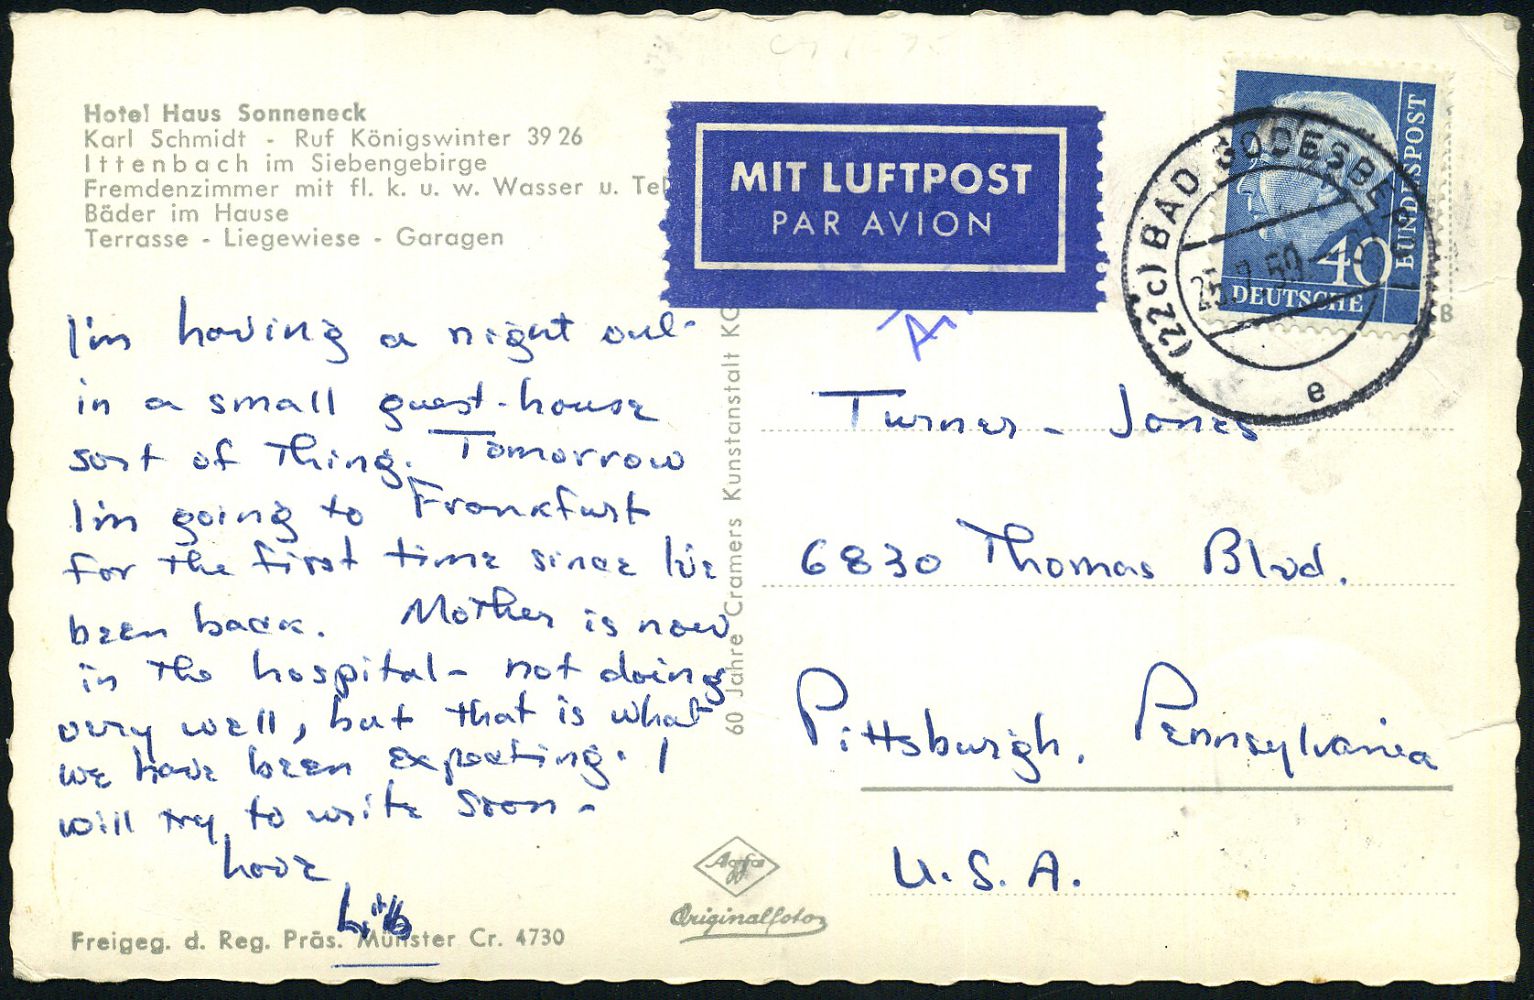 Hotel Haus Sonneneck
Karl Schmidt - Ruf Königswinter 39 26
Ittenbach im Siebengebirge
Fremdenzimmer mit fl. k. u. w. Wasser u. Tel
Bäder im Hause
Terrasse - Liegewiese - Garagen
MIT LUFTPOST
PAR AVION
(22c) BAD GODESBERG
25.9.59
e
40
DEUTSCHE
BUNDESPOST
B
I'm having a night out
in a small guest-house
sort of thing. Tomorrow
I'm going to Frankfurt
for the first time since I've
been back. Mother is now
in the hospital - not doing
very well, but that is what
we have been expecting. I
will try to write soon -
Love
60 Jahre Cramers Kunstanstalt KG
Turner - Jones
6830 Thomas Blvd.
Pittsburgh, Pennsylvania
U.S.A.
Agfa
Originalfoto
Freigeg. d. Reg. Präs. Münster Cr. 4730